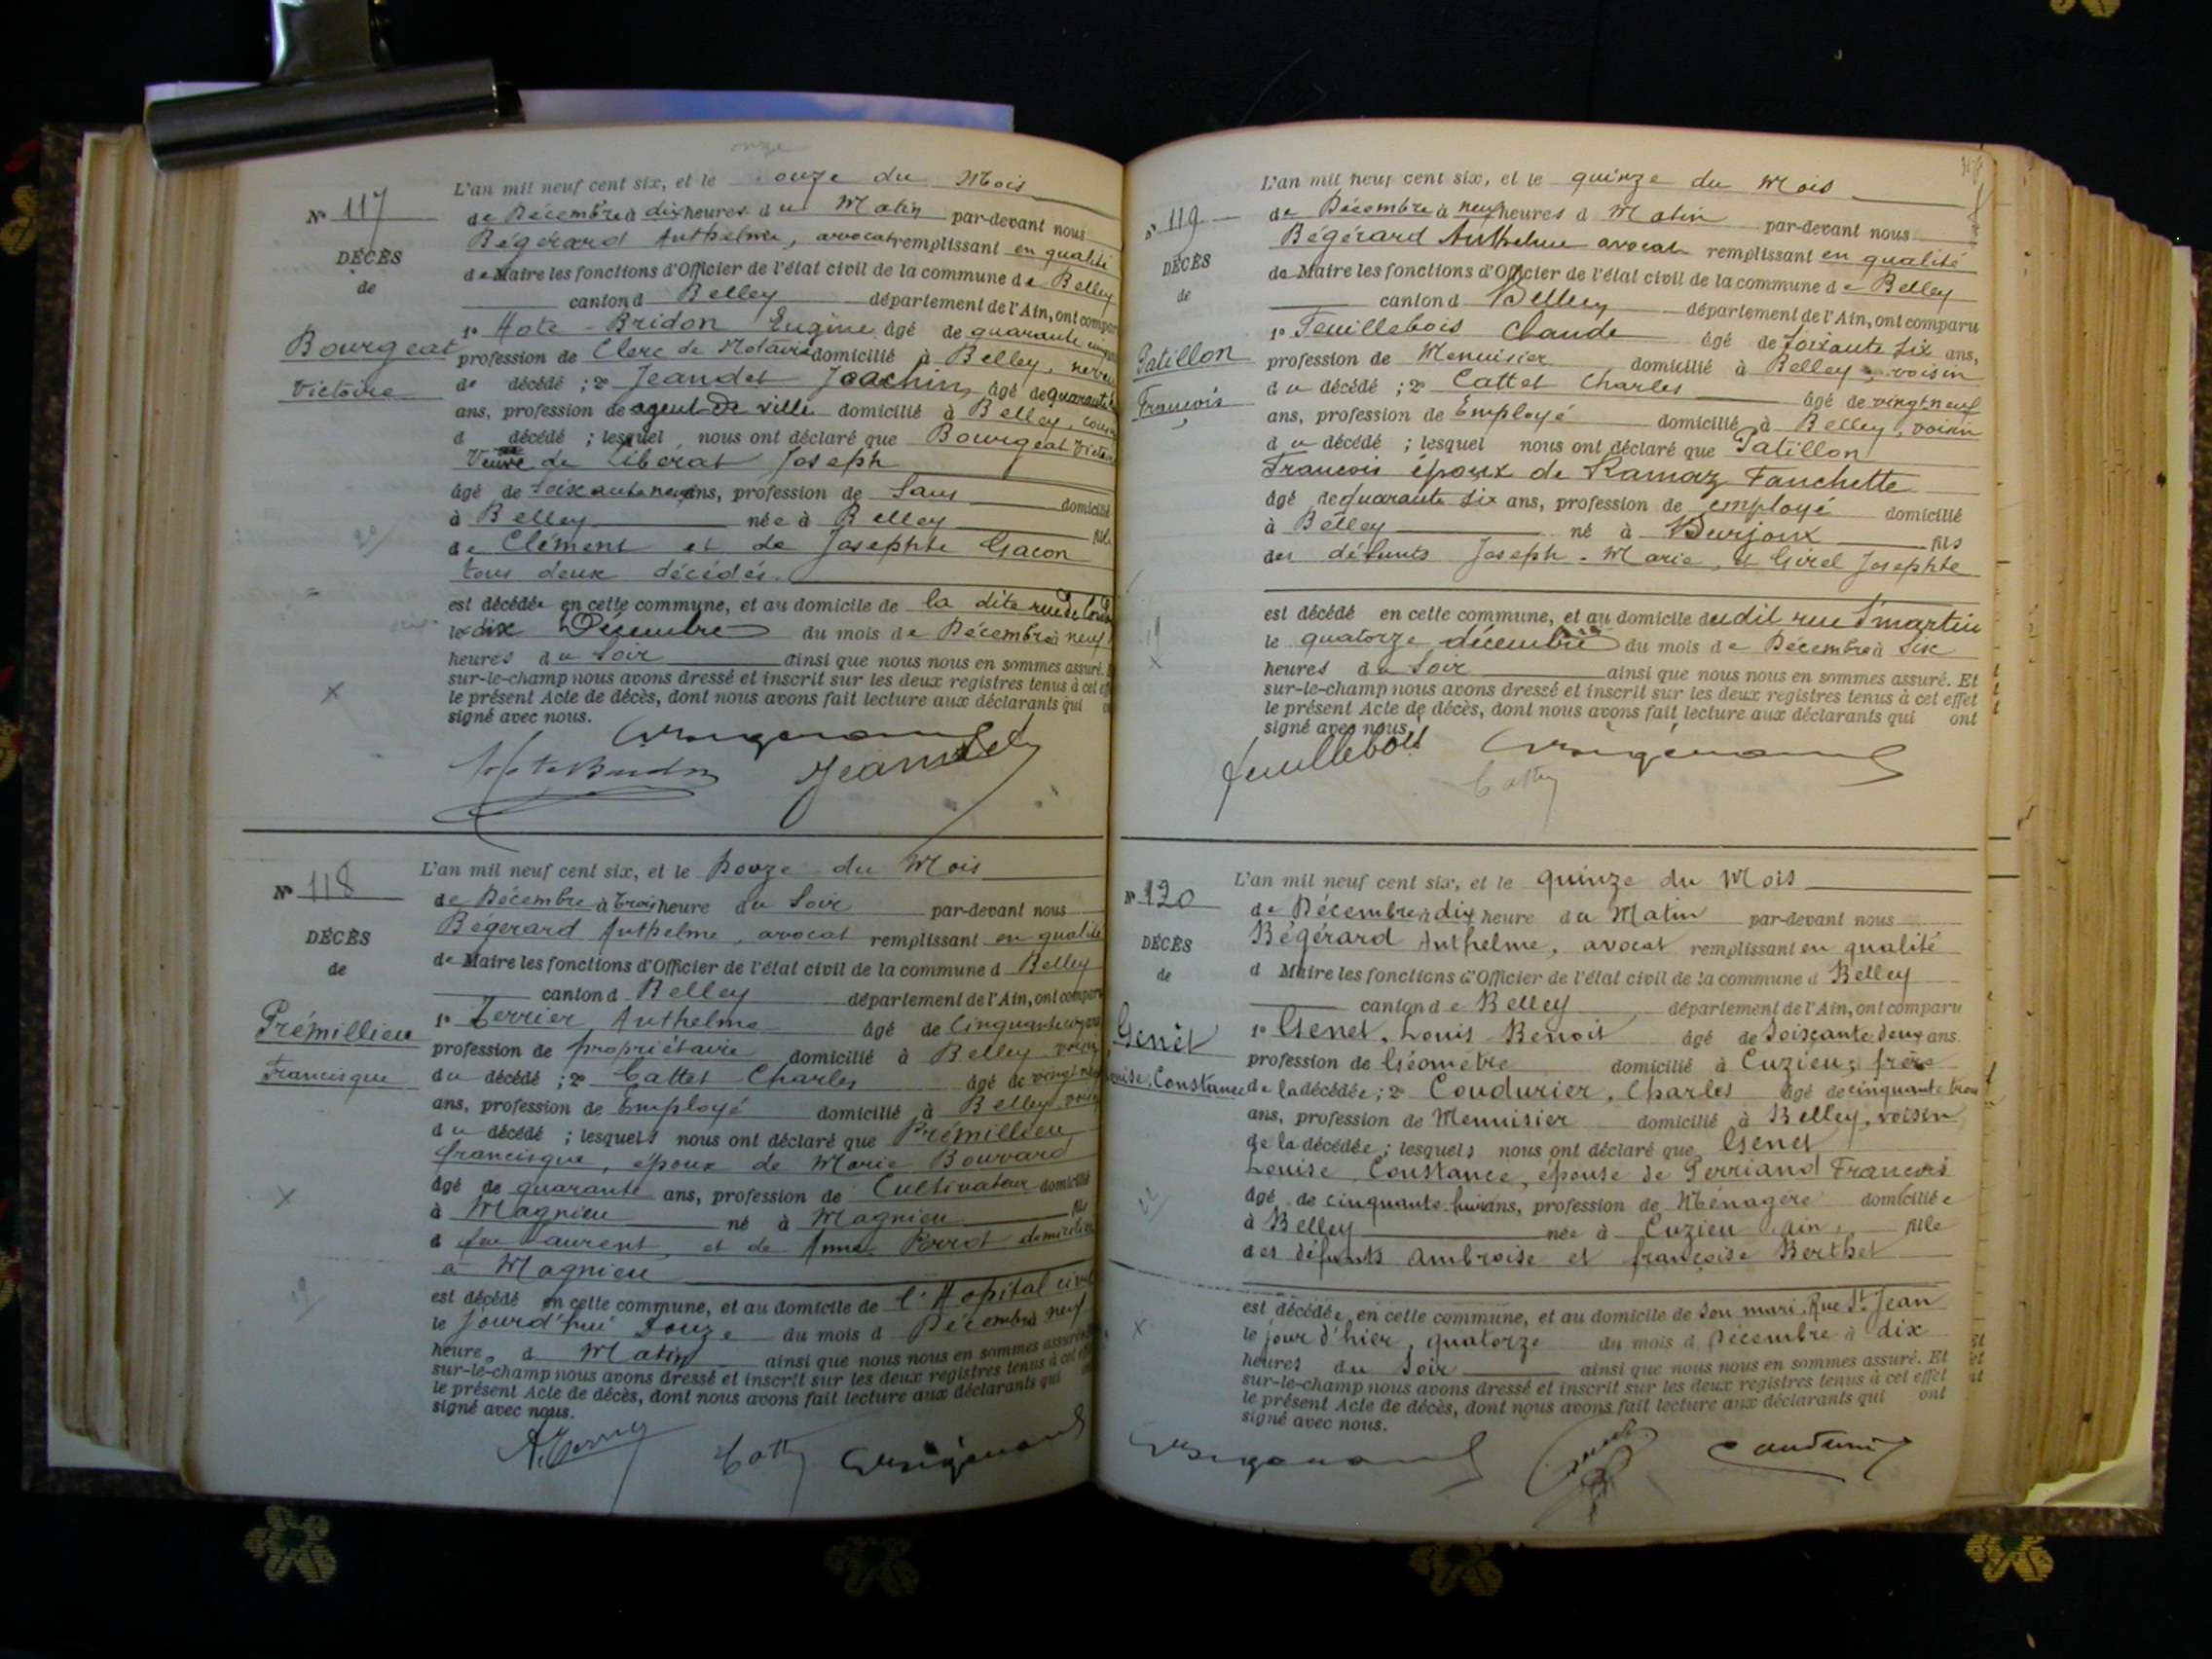 onze
L'an mil neuf cent six, et le onze du Mois
N° 117
de Décembre à dix heures du Matin par-devant nous
Bégérard Anthelme, avocat remplissant en qualité
DÉCÈS
de Maire les fonctions d'Officier de l'état civil de la commune de Belley
de
canton d Belley département de l'Ain, ont comparu
1° Hote-Bridon Eugène âgé de quarante
Bourgeat
profession de Clerc de Notaire domicilié à Belley, neveu
Victoire
de décédé ; 2° Jeandet Joachim, âgé de quarante
ans, profession de agent de ville domicilié à Belley,
d décédé ; lesquel nous ont déclaré que Bourgeat
Veuve de Liberat Joseph
âgé de soixante neuf ans, profession de Sans domicilié
à Belley née à Belley fille
de Clément et de Josephte Gacon
tous deux décédés.
est décédée en cette commune, et au domicile de la dite rue de
le dix Décembre du mois de Décembre à neuf
heures du Soir ainsi que nous nous en sommes assuré.
sur-le-champ nous avons dressé et inscrit sur les deux registres tenus à cet
le présent Acte de décès, dont nous avons fait lecture aux déclarants qui
signé avec nous.
Jeandet
L'an mil neuf cent six, et le Douze du Mois
N° 118
de Décembre à trois heure du Soir par-devant nous
Bégérard Anthelme, avocat remplissant en qualité
DÉCÈS
de Maire les fonctions d'Officier de l'état civil de la commune d Belley
de
canton d Belley département de l'Ain, ont comparu
1° Terrier Anthelme âgé de Cinquante
Prémillieu
profession de propriétaire domicilié à Belley voisin
Francisque
du décédé ; 2° Cattet Charles âgé de vingt neuf
ans, profession de Employé domicilié à Belley, voisin
du décédé ; lesquels nous ont déclaré que Prémillieu
francisque, époux de Marie Bouvard
âgé de quarante ans, profession de Cultivateur domicilié
à Magnieu né à Magnieu fils
d feu Laurent et de Anne Perrot domiciliée
à Magnieu
est décédé en cette commune, et au domicile de l'Hopital civil
le jourd'hui Douze du mois d Décembre à neuf
heure d Matin ainsi que nous nous en sommes assuré
sur-le-champ nous avons dressé et inscrit sur les deux registres tenus à cet
le présent Acte de décès, dont nous avons fait lecture aux déclarants qui
signé avec nous.
L'an mil neuf cent six, et le quinze du Mois
N° 119
de Décembre à neuf heures d Matin par-devant nous
Bégérard Anthelme avocat remplissant en qualité
DÉCÈS
de Maire les fonctions d'Officier de l'état civil de la commune de Belley
de
canton d Belley département de l'Ain, ont comparu
1° Feuillebois Claude âgé de soixante six ans,
Patillon
profession de Menuisier domicilié à Belley, voisin
François
du décédé ; 2° Cattet Charles âgé de vingt neuf
ans, profession de Employé domicilié à Belley, voisin
du décédé ; lesquel nous ont déclaré que Patillon
Francois époux de Ramaz Fanchette
âgé de quarante six ans, profession de employé domicilié
à Belley né à Burjoux fils
des défunts Joseph-Marie, et Girel Josephte
est décédé en cette commune, et au domicile du dit rue St martin
le quatorze décembre du mois de Décembre à Six
heures du Soir ainsi que nous nous en sommes assuré. Et
sur-le-champ nous avons dressé et inscrit sur les deux registres tenus à cet effet
le présent Acte de décès, dont nous avons fait lecture aux déclarants qui ont
signé avec nous.
feuillebois
L'an mil neuf cent six, et le quinze du Mois
N° 120
de Décembre à dix heure du Matin par-devant nous
Bégérard Anthelme, avocat remplissant en qualité
DÉCÈS
d Maire les fonctions d'Officier de l'état civil de la commune d Belley
de
canton de Belley département de l'Ain, ont comparu
Genêt
1° Genet, Louis Benoit âgé de Soixante deux ans
profession de Géomètre domicilié à Cuzieu, frère
Louise, Constance
de la décédée ; 2° Coudurier, Charles âgé de cinquante trois
ans, profession de Menuisier domicilié à Belley, voisin
de la décédée ; lesquels nous ont déclaré que Genet
Louise Constance, épouse de Perriand Francois
âgé de cinquante huit ans, profession de Ménagère domiciliée
à Belley née à Cuzieu Ain, fille
des défunts Ambroise et françoise Berthet
est décédée en cette commune, et au domicile de son mari, Rue St Jean
le jour d'hier, quatorze du mois d Décembre à dix
heures du Soir ainsi que nous nous en sommes assuré. Et
sur-le-champ nous avons dressé et inscrit sur les deux registres tenus à cet effet
le présent Acte de décès, dont nous avons fait lecture aux déclarants qui ont
signé avec nous.